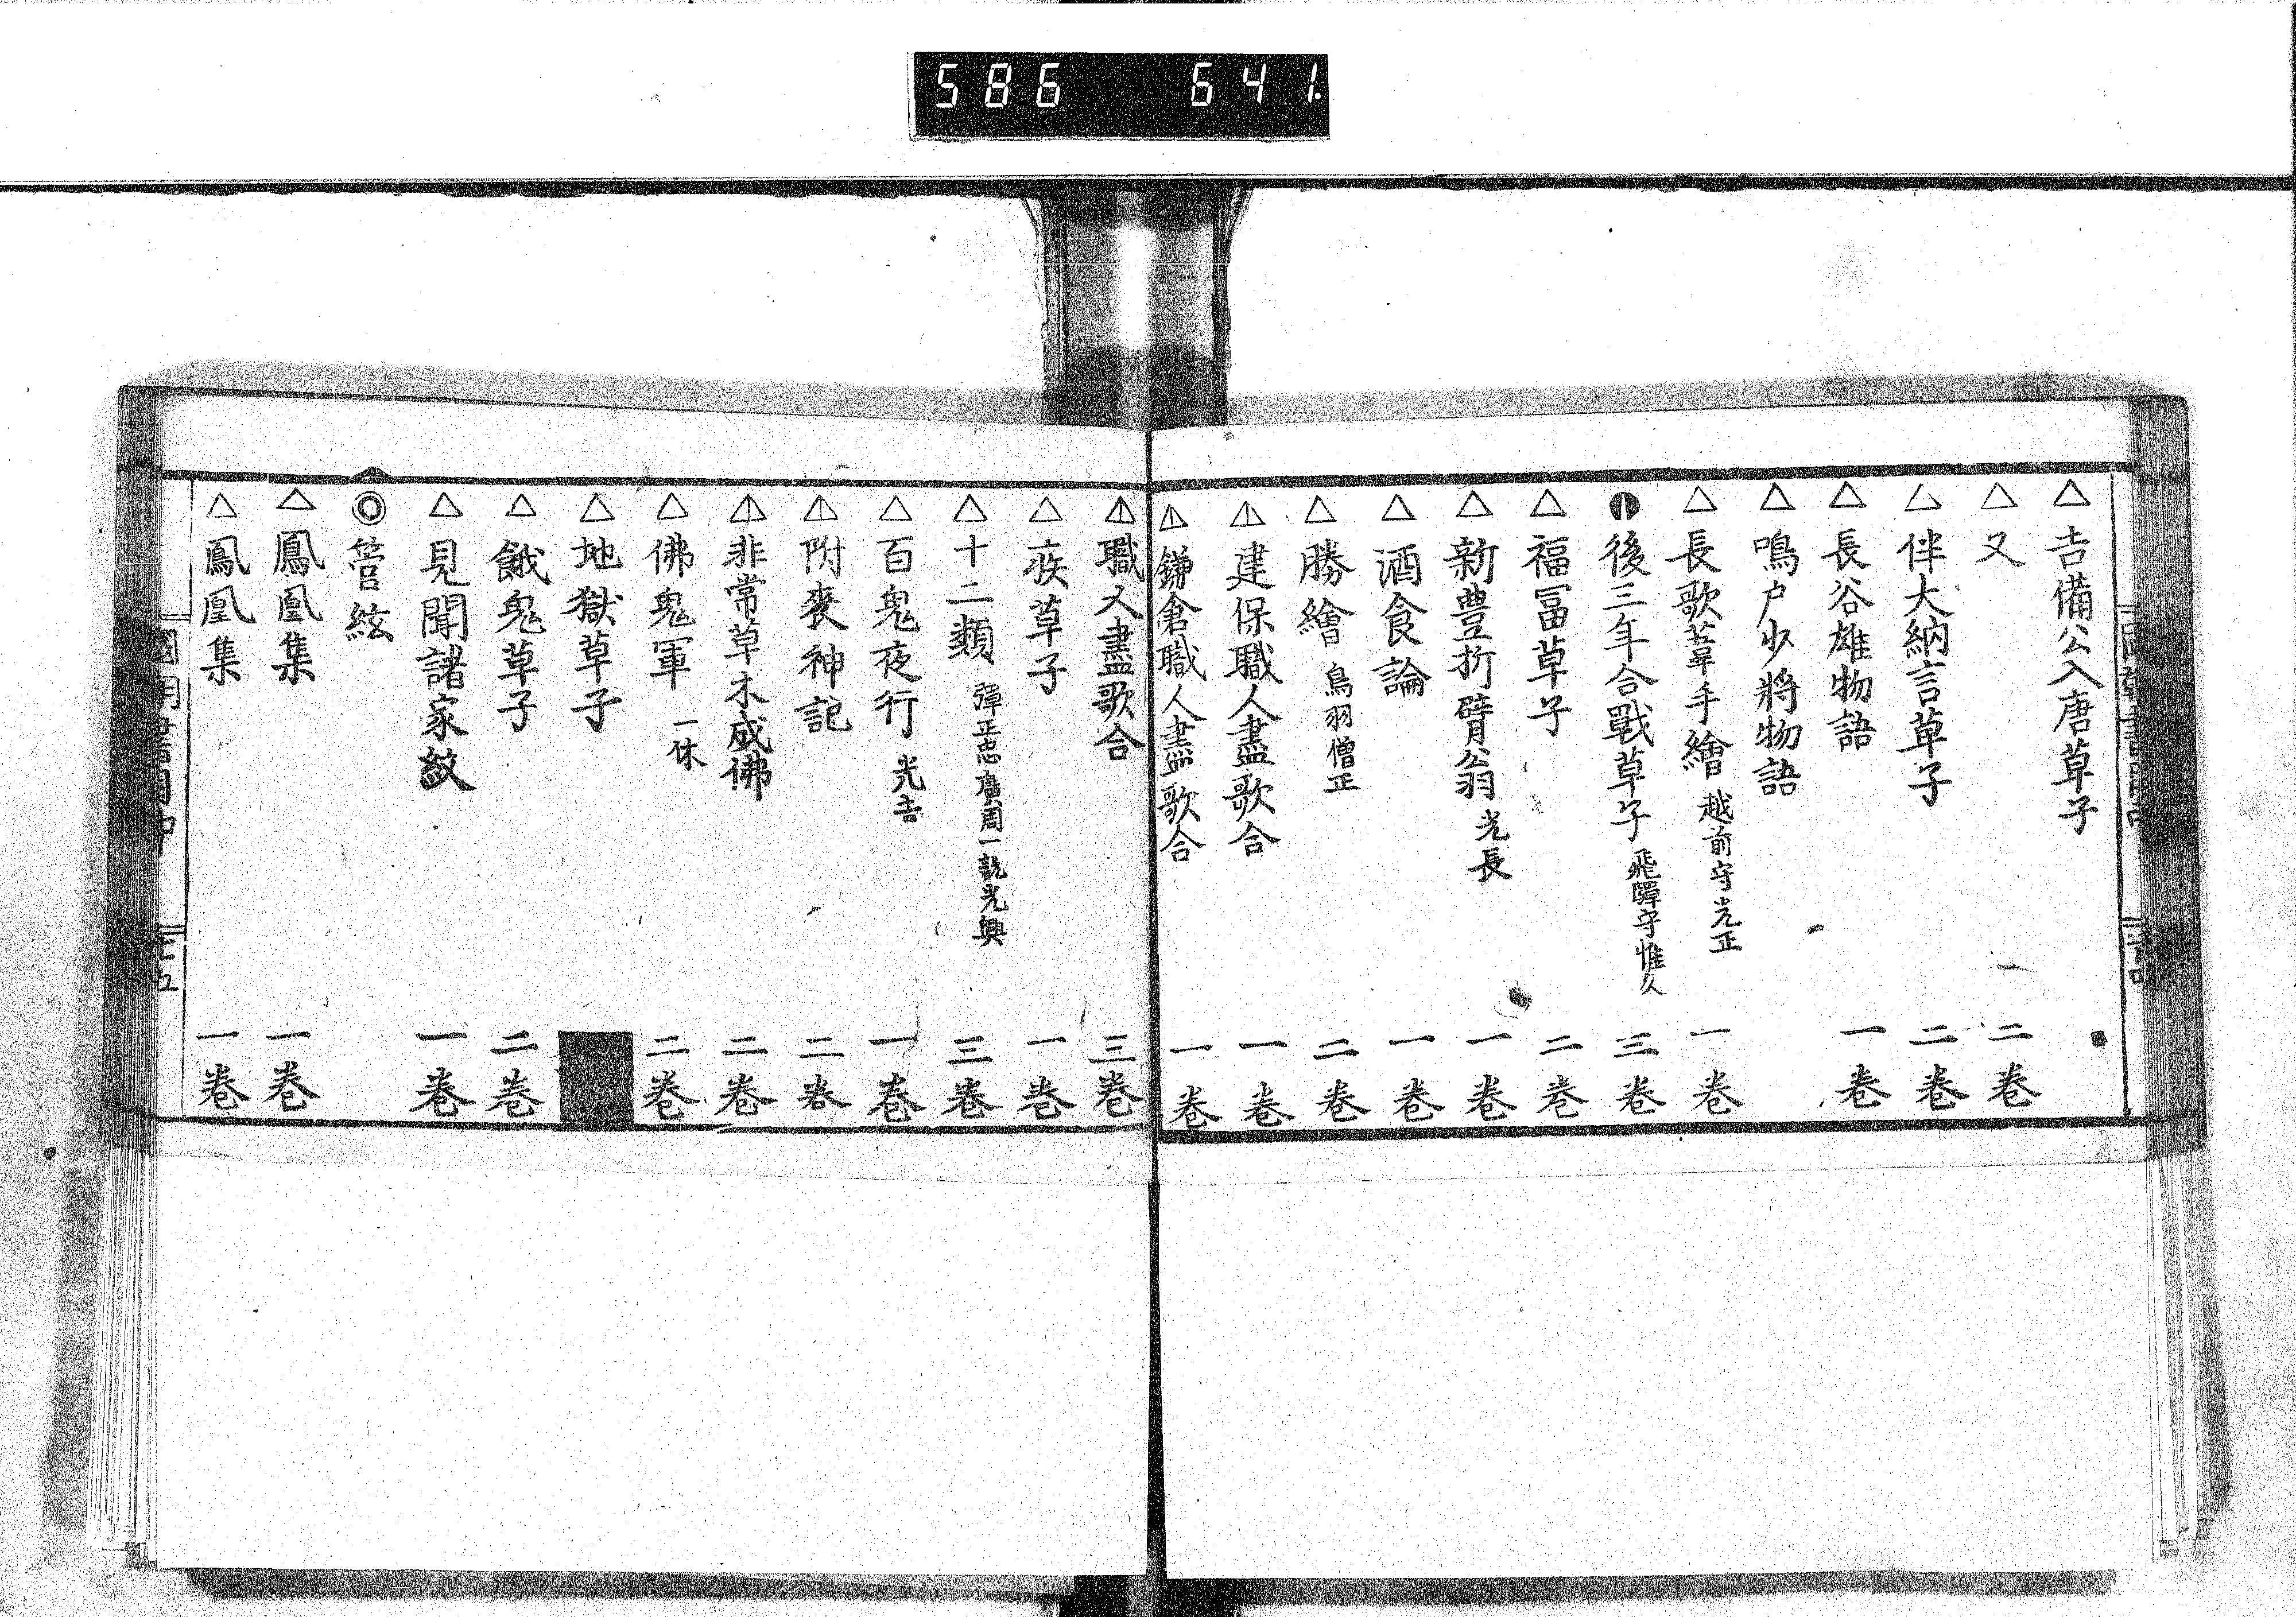 586 641.
△吉備公入唐草子
△又 二巻
△伴大納言草子 二巻
△長谷雄物語 一巻
△鳴戸少將物語
△長歌葦手繪 越前守光正 一巻
後三年合戰草子 飛驒守惟久 三巻
△福冨草子 二巻
△新豊折臂翁 光長 一巻
△酒食論 一巻
△勝繪 鳥羽僧正 二巻
建保職人盡歌合 一巻
鎌倉職人盡歌合 一巻
職人盡歌合 三巻
△疾草子 一巻
△十二類 彈正忠廣周一説光興 三巻
△百鬼夜行 光吉 一巻
附喪神記 二巻
非常草木成佛 二巻
△佛鬼軍 一休 二巻
△地獄草子
△餓鬼草子 二巻
△見聞諸家紋 一巻
◎管絃
△鳳凰集 一巻
△鳳凰集 一巻